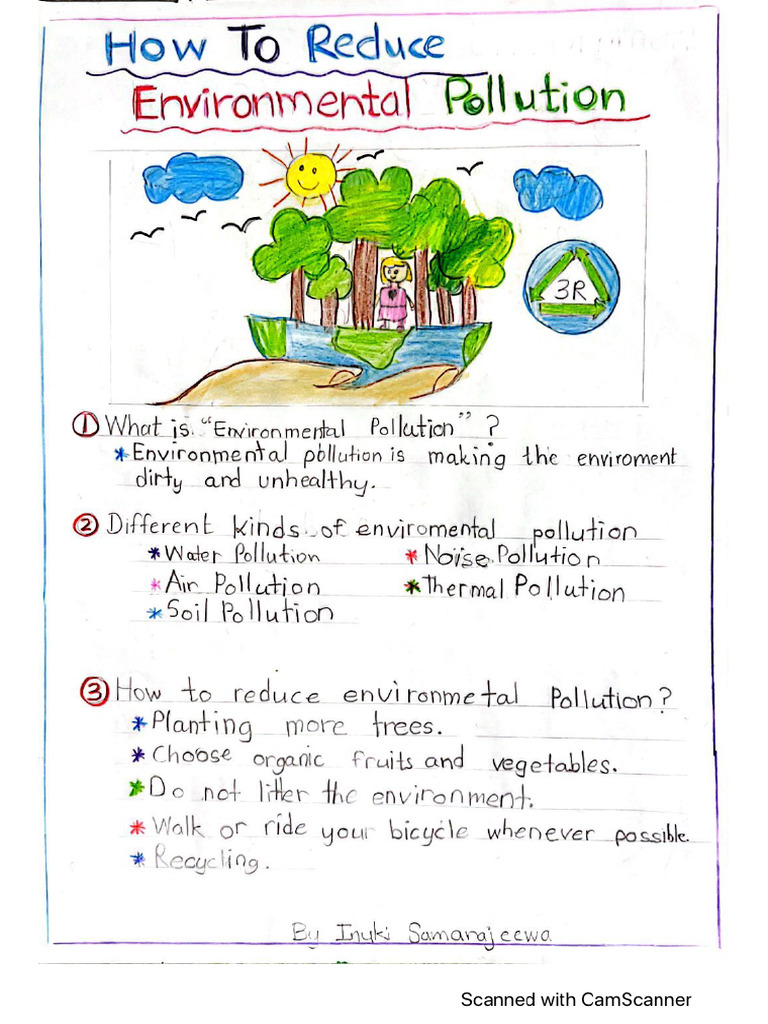 How To Reduce
Environmental Pollution
3R
① What is "Environmental Pollution" ?
* Environmental pollution is making the enviroment
dirty and unhealthy.
② Different kinds of enviromental pollution
* Water Pollution * Noise Pollution
* Air Pollution * Thermal Pollution
* Soil Pollution
③ How to reduce environmetal Pollution?
* Planting more trees.
* Choose organic fruits and vegetables.
* Do not litter the environment.
* Walk or ride your bicycle whenever possible.
* Recycling.
By Inuki Samarajeewa
Scanned with CamScanner